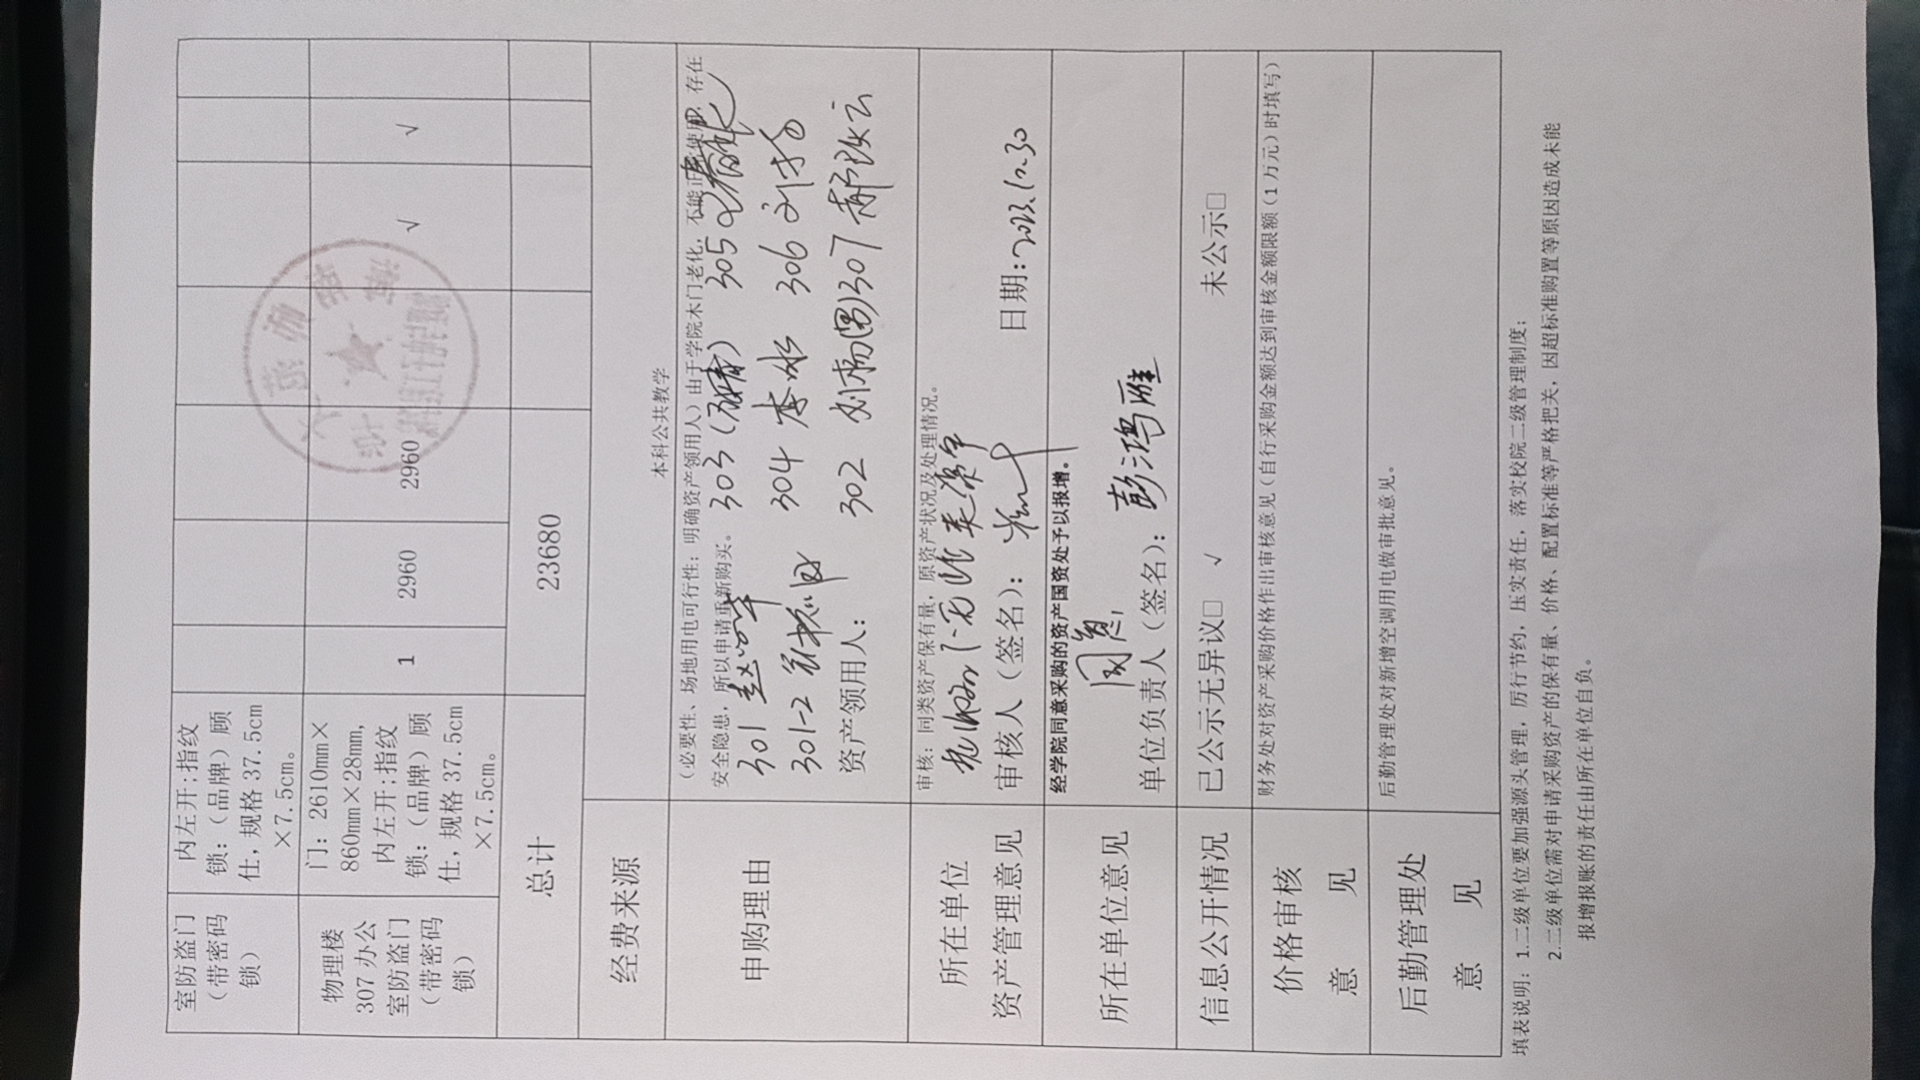 室防盗门
（带密码
锁）
内左开;指纹
锁:（品牌）顾
仕,规格 37.5cm
×7.5cm。
物理楼
307 办公
室防盗门
（带密码
锁）
门: 2610mm×
860mm×28mm,
内左开;指纹
锁:（品牌）顾
仕,规格 37.5cm
×7.5cm。
1
2960
2960
√
√
总计
23680
经费来源
本科公共教学
申购理由
（必要性、场地用电可行性; 明确资产领用人）由于学院木门老化, 不能正常使用, 存在
安全隐患, 所以申请重新购买。
303
305
301
304 李冰
306 刘扬
301-2
资产领用人:
302
307 郝跃云
所在单位
资产管理意见
审核: 同类资产保有量, 原资产状况及处理情况。
审核人（签名）:
日期: 2023.10.30
所在单位意见
经学院同意采购的资产国资处予以报增。
单位负责人（签名）: 彭鸿雁
信息公开情况
已公示无异议□ √
未公示□
价格审核
意 见
财务处对资产采购价格作出审核意见（自行采购金额达到审核金额限额（1 万元）时填写）
后勤管理处
意 见
后勤管理处对新增空调用电做审批意见。
填表说明: 1.二级单位要加强源头管理, 厉行节约, 压实责任, 落实校院二级管理制度;
2.二级单位需对申请采购资产的保有量、价格、配置标准等严格把关, 因超标准购置等原因造成未能
报增报账的责任由所在单位自负。